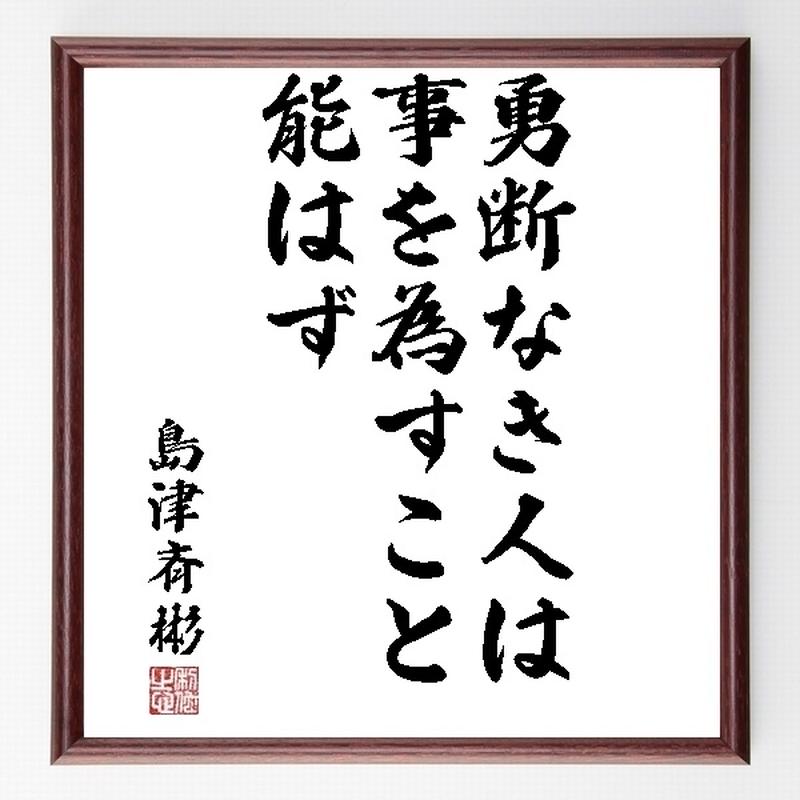 勇断なき人は
事を為すこと
能はず
島津斉彬